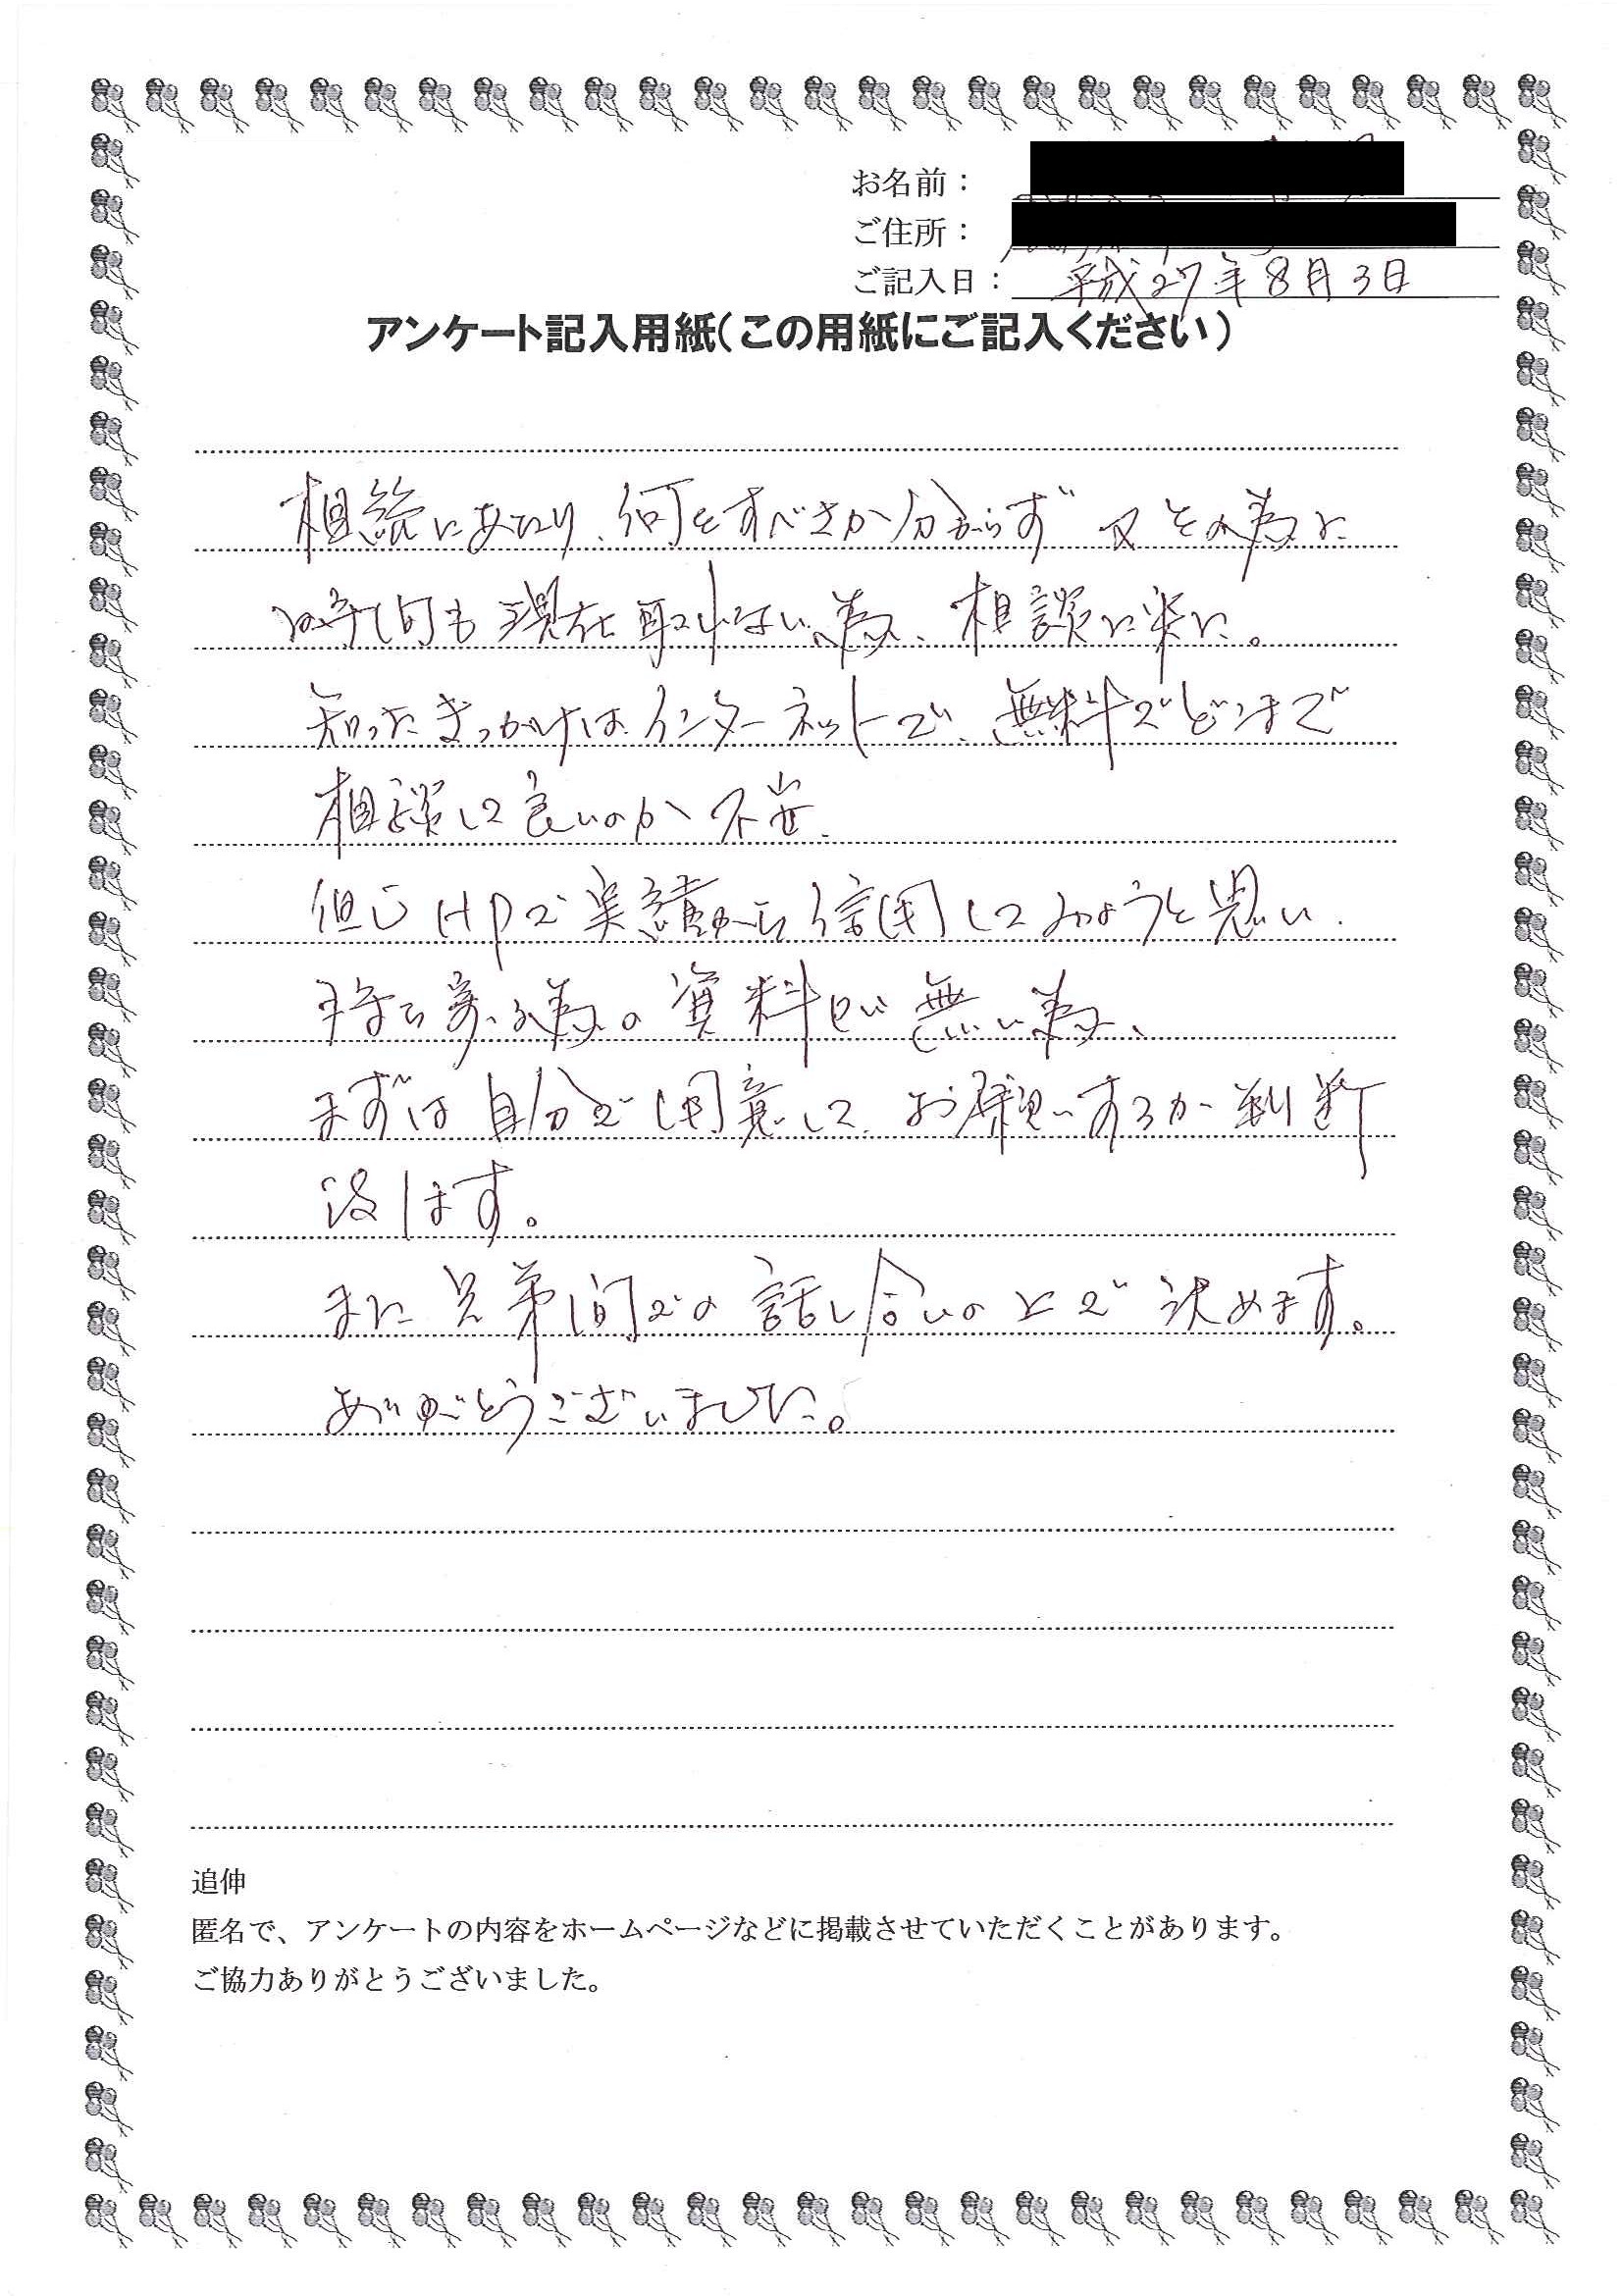 お名前：
ご住所：
ご記入日： 平成27年8月3日
アンケート記入用紙（この用紙にご記入ください）
相続にあたり、何をすべきか分からず 又その為に
時間も現在取れない為、相談に来た。
知ったきっかけはインターネットで、無料でどこまで
相談して良いのか不安。
但し HPで実績から信用してみようと思い、
持ち寄る為の資料が無い為、
まずは自分で用意して、お願いするか判断
致します。
また兄弟間での話し合いの上で決めます。
ありがとうございました。
追伸
匿名で、アンケートの内容をホームページなどに掲載させていただくことがあります。
ご協力ありがとうございました。